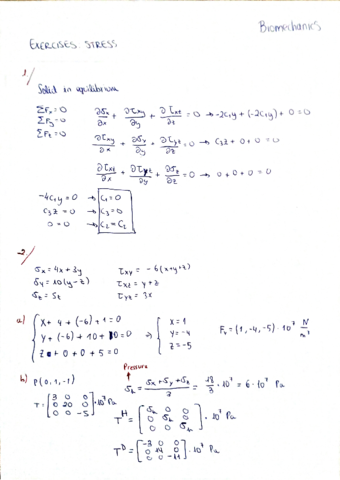 Biomechanics
EXERCISES. STRESS
1/
Solid in equilibrium
ΣFx = 0
ΣFy = 0
ΣFz = 0
∂σx/∂x + ∂τxy/∂y + ∂τxz/∂z = 0 → -2C1y + (-2C1y) + 0 = 0
∂τxy/∂x + ∂σy/∂y + ∂τyz/∂z = 0 → C3z + 0 + 0 = 0
∂τxz/∂x + ∂τyz/∂y + ∂σz/∂z = 0 → 0 + 0 + 0 = 0
-4C1y = 0 → C1 = 0
C3z = 0 → C3 = 0
0 = 0 → C2 = C2
2/
σx = 4x + 3y τxy = -6(x+y+z)
σy = 10(y-z) τxz = y+z
σz = 5z τyz = 3x
a) { X + 4 + (-6) + 1 = 0 { X = 1
Y + (-6) + 10 + 0 = 0 → Y = -4 Fv = (1, -4, -5) · 10³ N/m³
Z + 0 + 0 + 5 = 0 Z = -5
Pressure
b) P(0, 1, -1) σh = (σx + σy + σz)/3 = 18/3 · 10³ = 6 · 10³ Pa
T = [3 0 0; 0 20 0; 0 0 -5] · 10³ Pa
T^H = [σh 0 0; 0 σh 0; 0 0 σh] · 10³ Pa
T^D = [-3 0 0; 0 14 0; 0 0 -11] · 10³ Pa